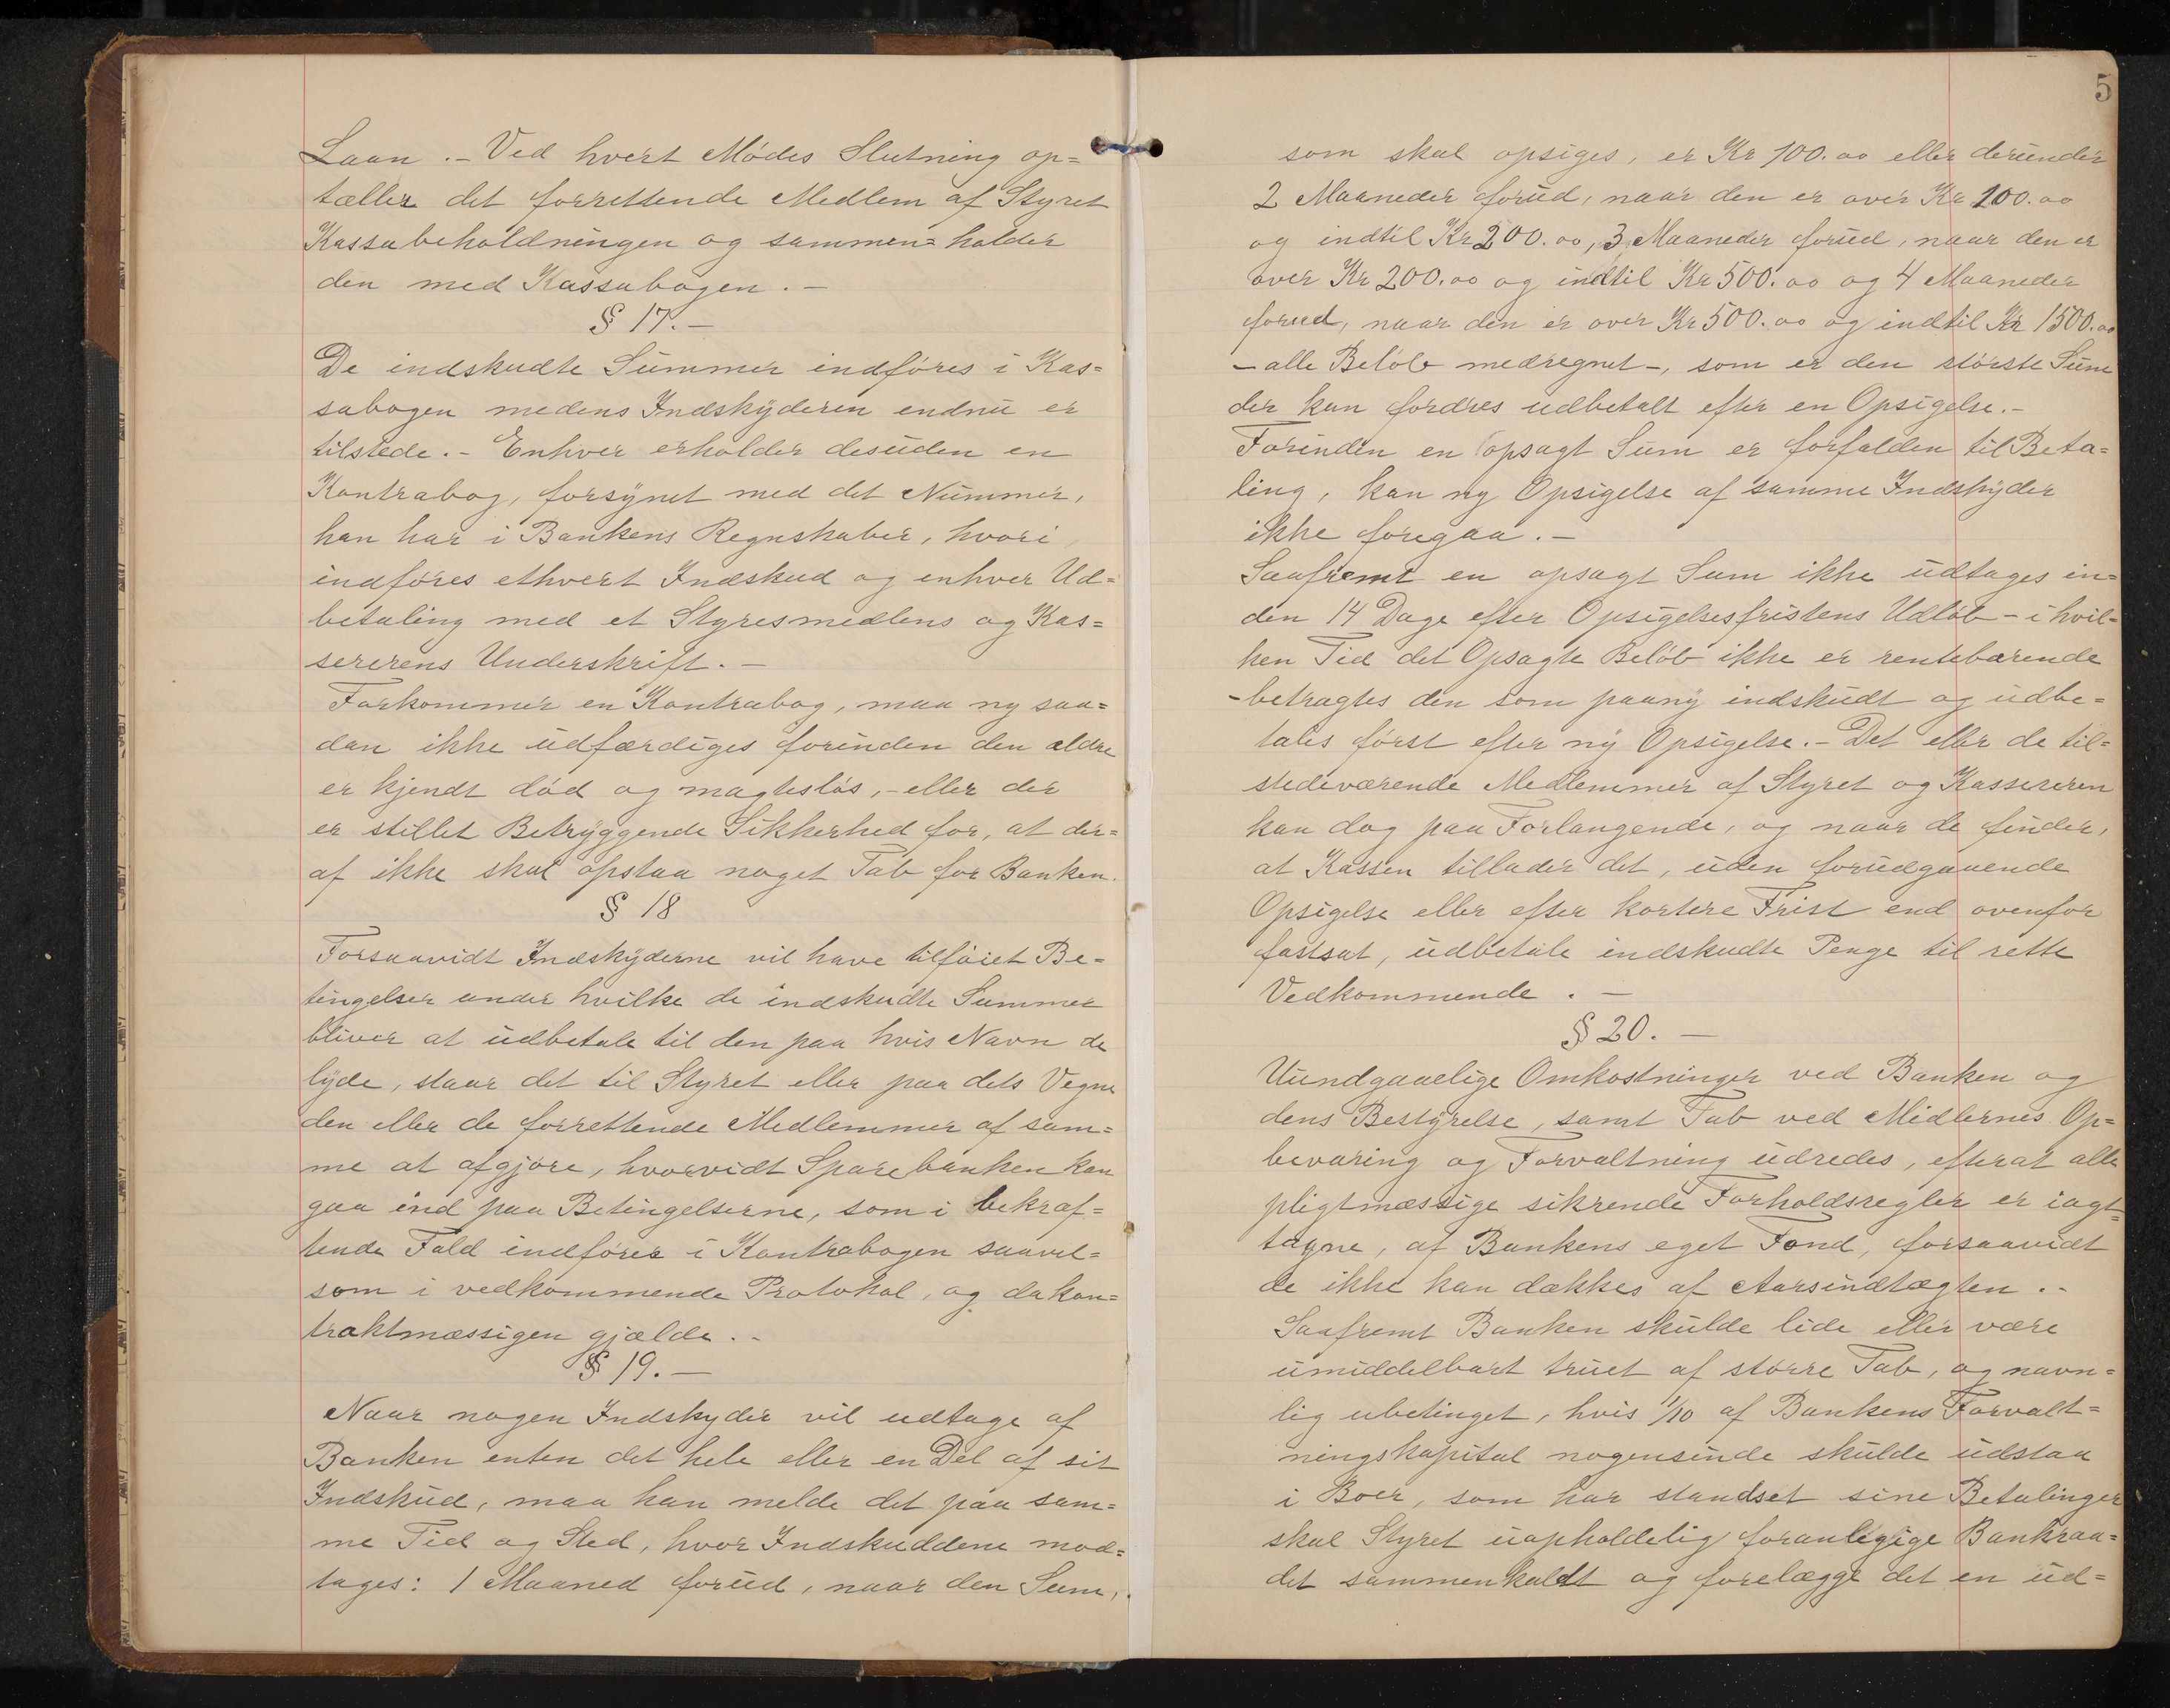 Laan .- Ved hvert Mødes Slutning op=
tæller det forrettende Medlem af Styret
Kassabeholdningen og sammen=holder
den med Kassabogen. -
§ 17. -
De indskudte Summer indføres i Kas=
sabogen medens Indskyderen endnu er
tilstede. - Enhver erholder desuden en
Kontrabog, forsynet med det Nummer,
han har i Bankens Regnskaber, hvori
indføres ethvert Indskud og enhver Ud=
betaling med et Styresmedlens og Kas=
sererens Underskrift. -
Forkommer en Kontrabog, maa ny saa=
dan ikke udfærdiges forinden den ældre
er kjendt død og magtesløs, - eller der
er stillet Betryggende Sikkerhed for, at der=
af ikke skal opstaa noget Tab for Banken.
§ 18
Forsaavidt Indskyderne vil have tilføiet Be=
tingelser under hvilke de indskudte Summer
bliver at udbetale til den paa hvis Navn de
lyde, staar det til Styret eller paa dets Vegne
den eller de forrettende Medlemmer af sam=
me at afgjøre, hvorvidt Sparebanken kan
gaa ind paa Betingelserne, som i bekræf=
tende Fald indføres i Kontrabogen saavel=
som i vedkommende Protokol, og da kon=
traktmæssigen gjælde. -
§ 19. -
Naar nogen Indskyder vil udtage af
Banken enten det hele eller en Del af sit
Indskud, maa han melde det paa sam=
me Tid og Sted, hvor Indskuddene mod=
tages: 1 Maaned forud, naar den Sum,
5
som skal opsiges, er Kr 100.00 eller derunder
2 Maaneder forud, naar den er over Kr 100.00
og indtil Kr 200.00, 3 Maaneder forud, naar den er
over Kr 200.00 og indtil Kr 500.00 og 4 Maaneder
forud, naar den er over Kr 500.00 og indtil Kr 1500.00
- alle Beløb medregnet -, som er den største Sum
der kan fordres udbetalt efter en Opsigelse. -
Forinden en opsagt Sum er forfalden til Beta=
ling, kan ny Opsigelse af samme Indskyder
ikke foregaa. -
Saafremt en opsagt Sum ikke udtages in=
den 14 Dage efter Opsigelsesfristens Udløb - i hvil=
ken Tid det Opsagte Beløb ikke er rentebærende
- betragtes den som paany indskudt og udbe=
tales først efter ny Opsigelse. - Det eller de til=
stedeværende Medlemmer af Styret og Kassereren
kan dog paa Forlangende, og naar de finder,
at Kassen tillader det, uden forudgaaende
Opsigelse eller efter kortere Frist end ovenfor
fastsat, udbetale indskudte Penge til rette
Vedkommende . -
§ 20. -
Uundgaaelige Omkostninger ved Banken og
dens Bestyrelse, samt Tab ved Midlernes Op=
bevaring og Forvaltning udredes, efterat alle
pligtmæssige sikrende Forholdsregler er iagt=
tagne, af Bankens eget Fond, forsaavidt
de ikke kan dækkes af Aarsindtægten. -
Saafremt Banken skulde lide eller være
umiddelbart truet af større Tab, og navn=
lig ubetinget, hvis 1/10 af Bankens Forvalt=
ningskapital nogensinde skulde udstaa
i Boer, som har standset sine Betalinger
skal Styret uopholdelig foranlegige Bankraa=
det sammenkaldt og forelægge det en ud=